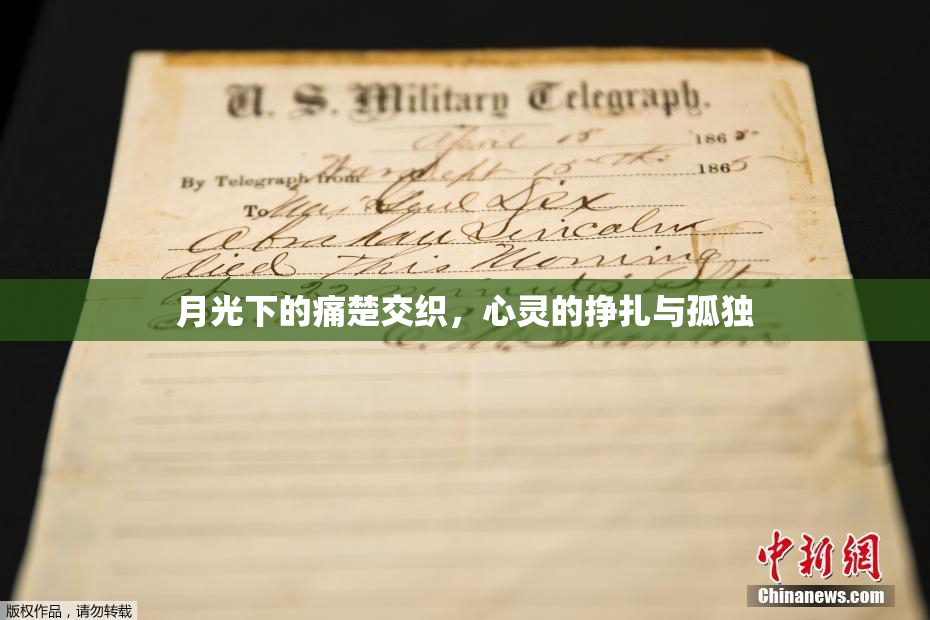 U. S. Military Telegraph.
April 15 1865
By Telegraph from War Dept 15th 1865
To Maj Genl Dix
Abraham Lincoln
died This Morning
at 22 minutes after
月光下的痛楚交织，心灵的挣扎与孤独
E. M. Stanton
中新網
Chinanews.com
版权作品，请勿转载